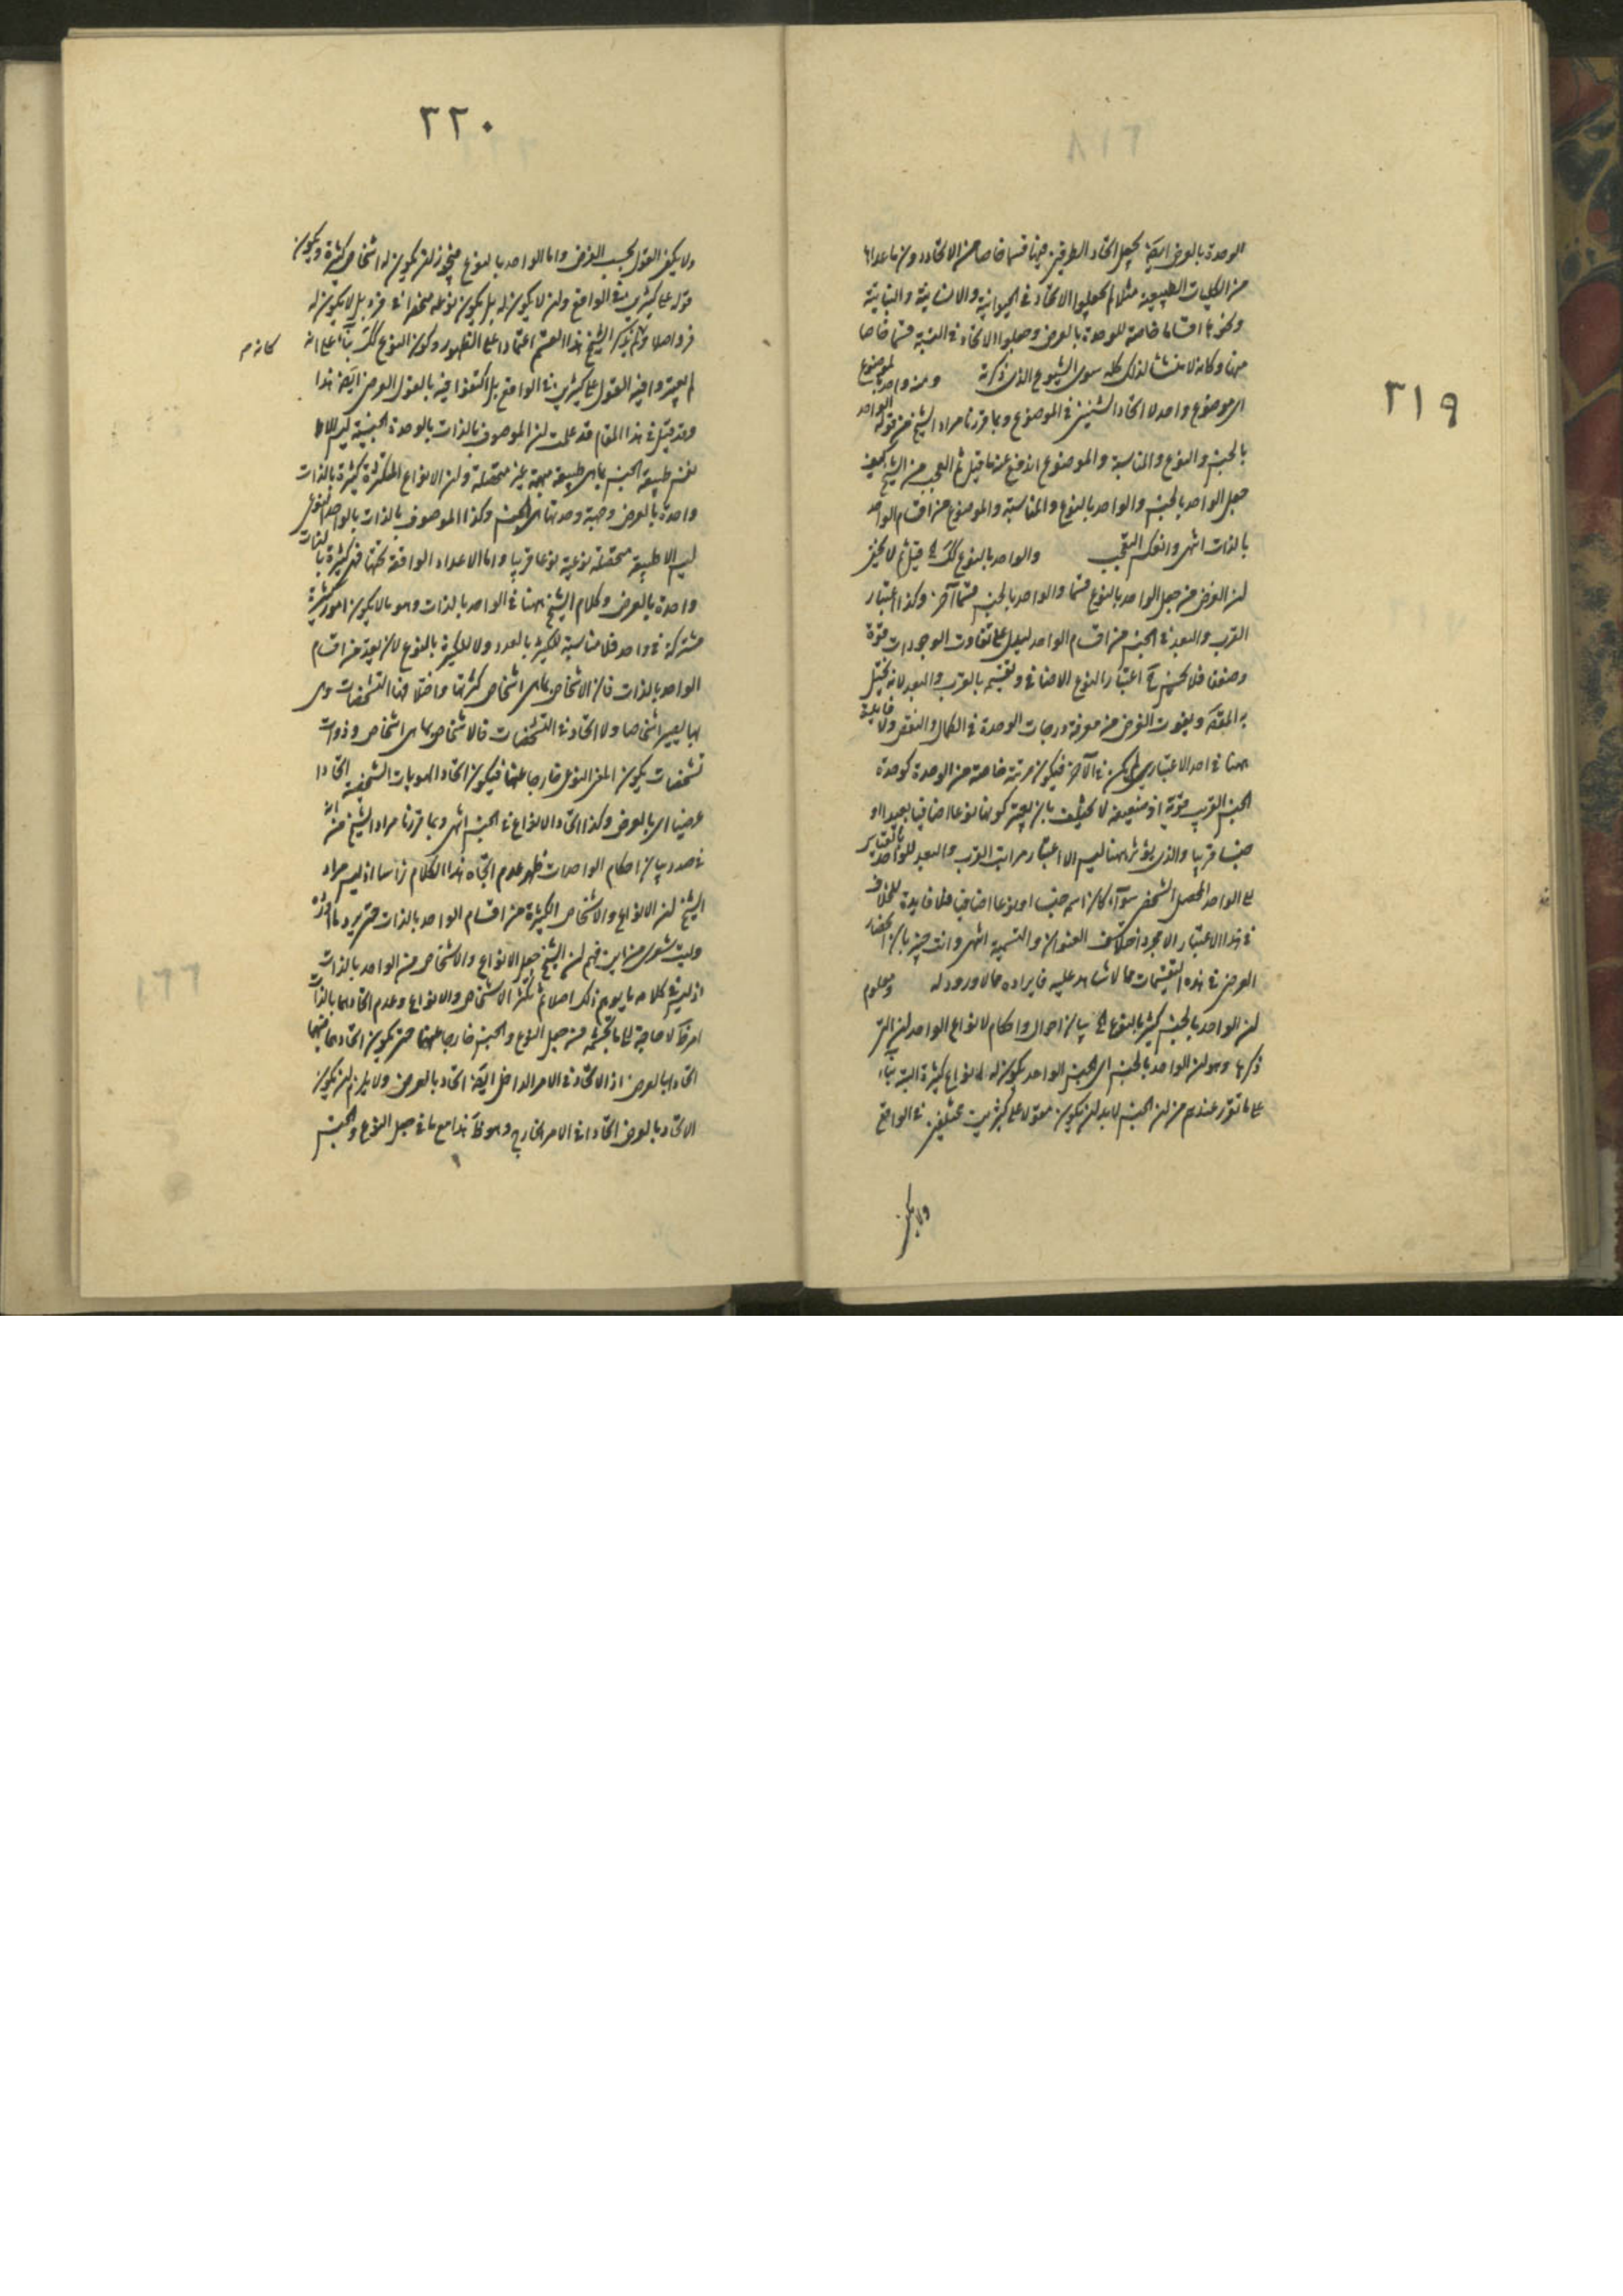 ٣١٩
الوحدة بالعرض ايضا يجعل اتحاد الطرفين فيها قسما خاصا من الاتحاد دون ما عداها
من الكليات الطبيعية مثلا لم يجعلوا الاتحاد في الحيوانية والانسانية والنباتية
ونحوها اقساما خاصة للوحدة بالعرض وجعلوا الاتحاد في النسبة قسما خاصا
منها وكانه لا منشأ لذلك كله سوى الشيوع الذي ذكرته ومنه واحد بالموضوع
اي موضوع واحد لا اتحاد الشيئين في الموضوع وبما قررنا مراد الشيخ من قوله الواحد
بالجنس والنوع والمناسبة والموضوع اندفع عنه ما قيل ثم العجب من الشيخ كيف
جعل الواحد بالجنس والواحد بالنوع والمناسبة والموضوع من اقسام الواحد
بالذات انتهى وانفك التعجب والواحد بالنوع كك قيل ثم لا يخفى
لن الغرض من جعل الواحد بالنوع قسما والواحد بالجنس قسما آخر وكذا اعتبار
القرب والبعد في الجنس من اقسام الواحد ليدل على تفاوت الوحدات قوة
وضعفا فلا يحسن اعتبار النوع الاضافي وتقسيمه بالقرب والبعد لانه يختل
به المقصود ويفوت الغرض من معرفة درجات الوحدة في الكمال والنقص ولا فايدة
ههنا في احد الاعتبارين لم يكن في الآخر فيكون مرتبة خاصة من الوحدة كوحدة
الجنس القريب قوية او ضعيفة لا يختلف بان يعتبر كونها نوعا اضافيا بعيدا او
جنسا قريبا والذي يؤثر ههنا ليس الا اعتبار مراتب القرب والبعد للواحد بالقياس
الى الواحد المحصل الشخصي سوآء كان اسمه جنسا او نوعا اضافيا فلا فايدة للخلاف
في هذا الاعتبار الا مجرد اختلاف العنوان والتسمية انتهى وانت خبير بان انحصار
الغرض في هذه التقسيمات مما لا شاهد عليه فايراده مما لا ورود له ومعلوم
لن الواحد بالجنس كثير بالنوع بيان احوال واحكام لانواع الواحد التي
ذكرها وهو لن الواحد بالجنس اي الجنس الواحد يكون له انواع كثيرة البتة بناء
على ما تقرر عندهم من لن الجنس لا بد لن يكون مقولا على كثيرين مختلفين في الواقع
ولا يكفي
٣٢٠
ولا يكفي القول بحسب الفرض واما الواحد بالنوع فيجوز لن يكون له اشخاص كثيرة ويكون
قوله على كثيرين في الواقع ولن لا يكون له بل يكون نوعه منحصرا في فرد بل لا يكون له
فرد اصلا ولم يذكر الشيخ هذا القسم اعتمادا على الظهور وكون النوع كك بناء على انه كانه م
لم يعتبروا فيه القول على كثيرين في الواقع بل اكتفوا فيه بالقول الفرضي ايضا هذا
وقد قيل في هذا المقام قد علمت لن الموصوف بالذات بالوحدة الجنسية ليس الا
نفس طبيعة الجنس بما هي طبيعة مبهمة غير متحصلة ولن الانواع المتكثرة كثيرة بالذات
واحدة بالعرض وجهة وحدتها هي الجنس وكذا الموصوف بالذات بالواحد النوعي
ليس الا طبيعة متحصلة نوعية نوعا قريبا واما الاعداد الواقعة تحتها فهي كثيرة بالذات
واحدة بالعرض وكلام الشيخ ههنا في الواحد بالذات وهو ما لا يكون امور كثيرة
مشتركة في واحد فلا مناسبة للكثير بالعدد ولا للكثيرة بالنوع لان يعد من اقسام
الواحد بالذات فان الاشخاص بما هي اشخاص كثرتها واختلافها التشخصات وهي
بها يصير اشخاصا ولا اتحاد في التشخصات فالاشخاص بما هي اشخاص وذوات
تشخصات يكون المعنى النوعي خارجا عنها فيكون اتحاد الهويات الشخصية اتحادا
عرضيا اي بالعرض وكذا اتحاد الانواع في الجنس انتهى وبما قررنا مراد الشيخ من انه
في صدد بيان احكام الواحدات ظهر عدم اتجاه هذا الكلام راسا اذ ليس مراد
الشيخ لن الانواع والاشخاص الكثيرة من اقسام الواحد بالذات حتى يرد ما اورده
وليت شعري من اين فهم لن الشيخ جعل الانواع والاشخاص من الواحد بالذات
اذ ليس في كلامه ما يوهم ذلك اصلا ثم تكثر الاشخاص والانواع وعدم اتحادهما بالذات
امر لا حاجة الى ما تجشمه من جعل النوع والجنس خارجا عنهما حتى يكون اتحادهما فيهما
اتحادا بالعرض اذ الاتحاد في الامر الداخل ايضا اتحاد بالعرض ولا يلزم لن يكون
الاتحاد بالعرض اتحادا في الامر الخارج وهو ظ هذا مع ما في جعل النوع والجنس